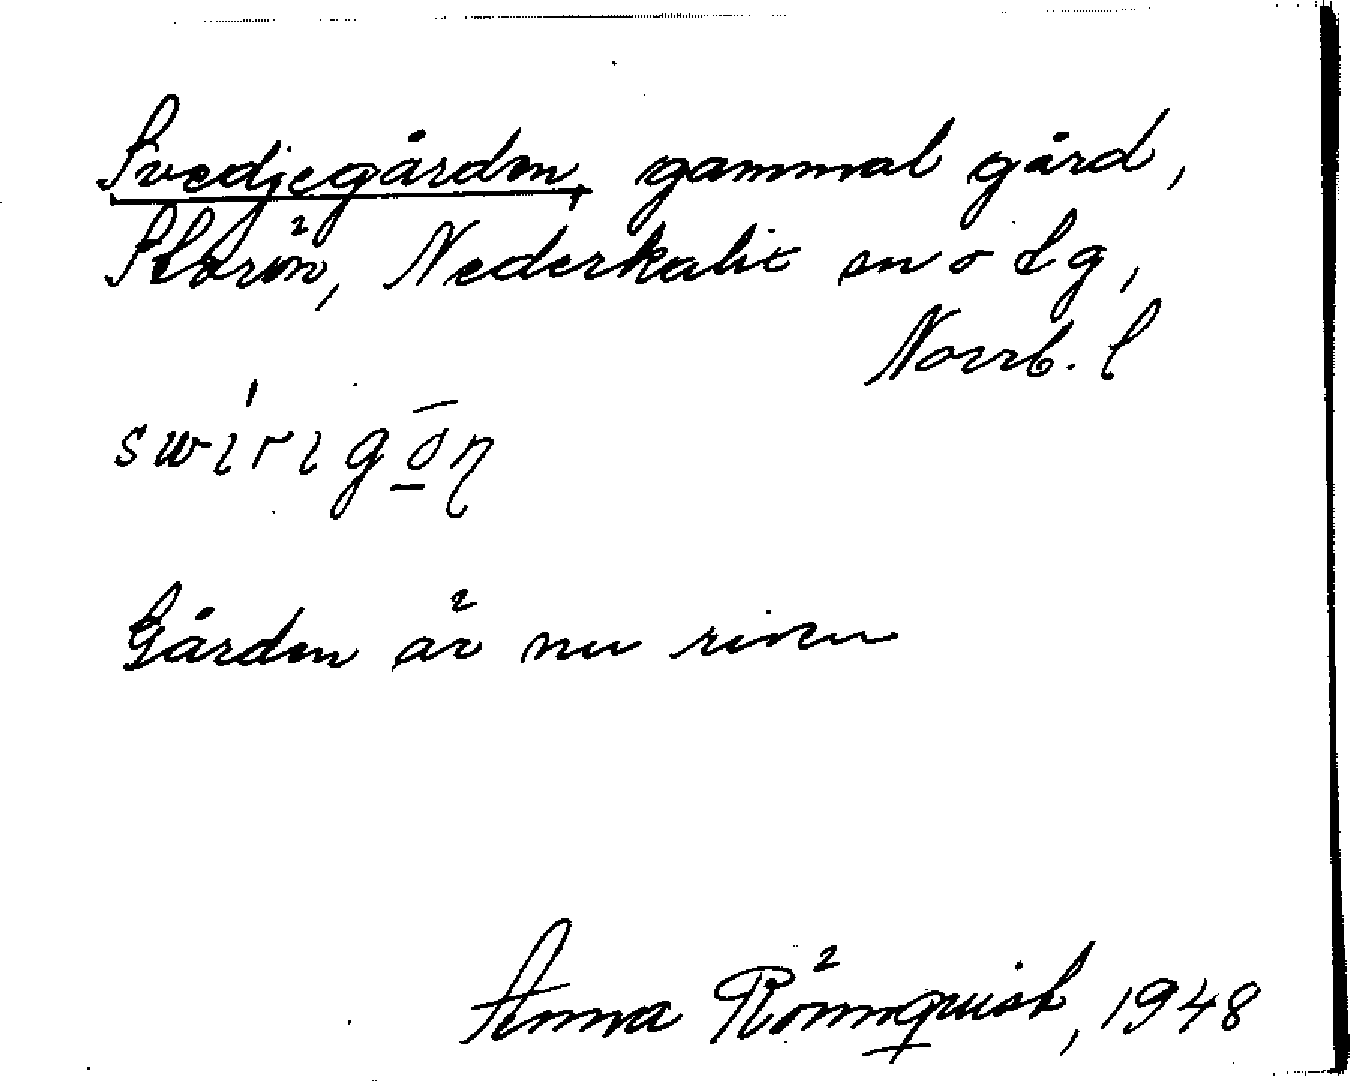 Svedjegården, gammal gård,
Storön, Nederkalix sn o tg,
Norrb. l
swírigō̱ṇ
Gården är nu riven
Anna Rönnquist, 1948